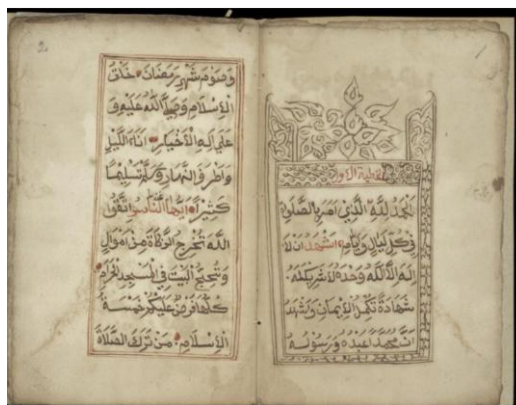 1
خطبة الاولى
الحمد لله الذي امر بالصلوة
في كل ليال وايام اشهد ان لا
اله الا الله وحده لا شريك له
شهادة تكمل الايمان ونشهد
ان محمدا عبده ورسوله
2
وصوم شهر رمضان خلق
الإسلام وصلى الله عليه و
على اله الاخيار اناء الليل
واطراف النهار وسلم تسليما
كثيرا ايها الناس اتقوا
الله تخرج الزكاة من اموال
وتحجج البيت في المسجد الحرام
كلها فرض عليكم خمسة
الإسلام من ترك الصلاة